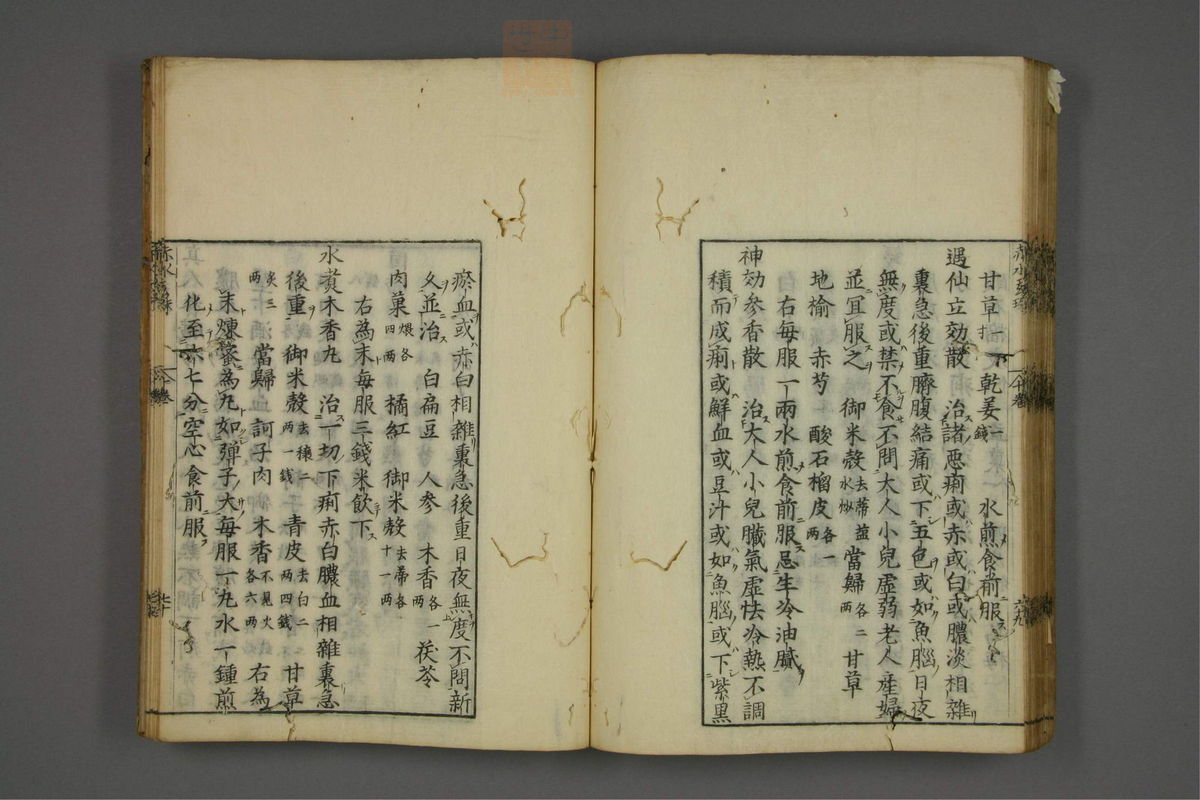 甘草 乾姜一錢 水煎食前服
遇仙立効散 治諸悪痢或赤或白或膿淡相雜
裏急後重臍腹結痛或下五色或如魚腦日夜
無度或禁不食不問大人小兒虛弱老人産婦
並冝服之 御米殼去蒂蓋水炒 當歸各二兩 甘草
地榆 赤芍 酸石榴皮各一兩
右每服一兩水煎食前服忌生冷油膩
神効參香散 治大人小兒臟氣虛怯冷熱不調
積而成痢或鮮血或豆汁或如魚腦或下紫黒
瘀血或赤白相雜裏急後重日夜無度不問新
久並治 白扁豆 人參 木香各一兩 茯苓
肉菓煨各四兩 橘紅 御米殼去蒂各十一兩
右為末每服三錢米飲下
水煑木香丸 治一切下痢赤白膿血相雜裏急
後重 御米殼去穰二兩一錢 青皮去白二兩四錢 甘草
炙三兩 當歸 訶子肉 木香不見火各六兩 右為
末煉蜜為丸如彈子大每服一丸水一鍾煎
化至六七分空心食前服